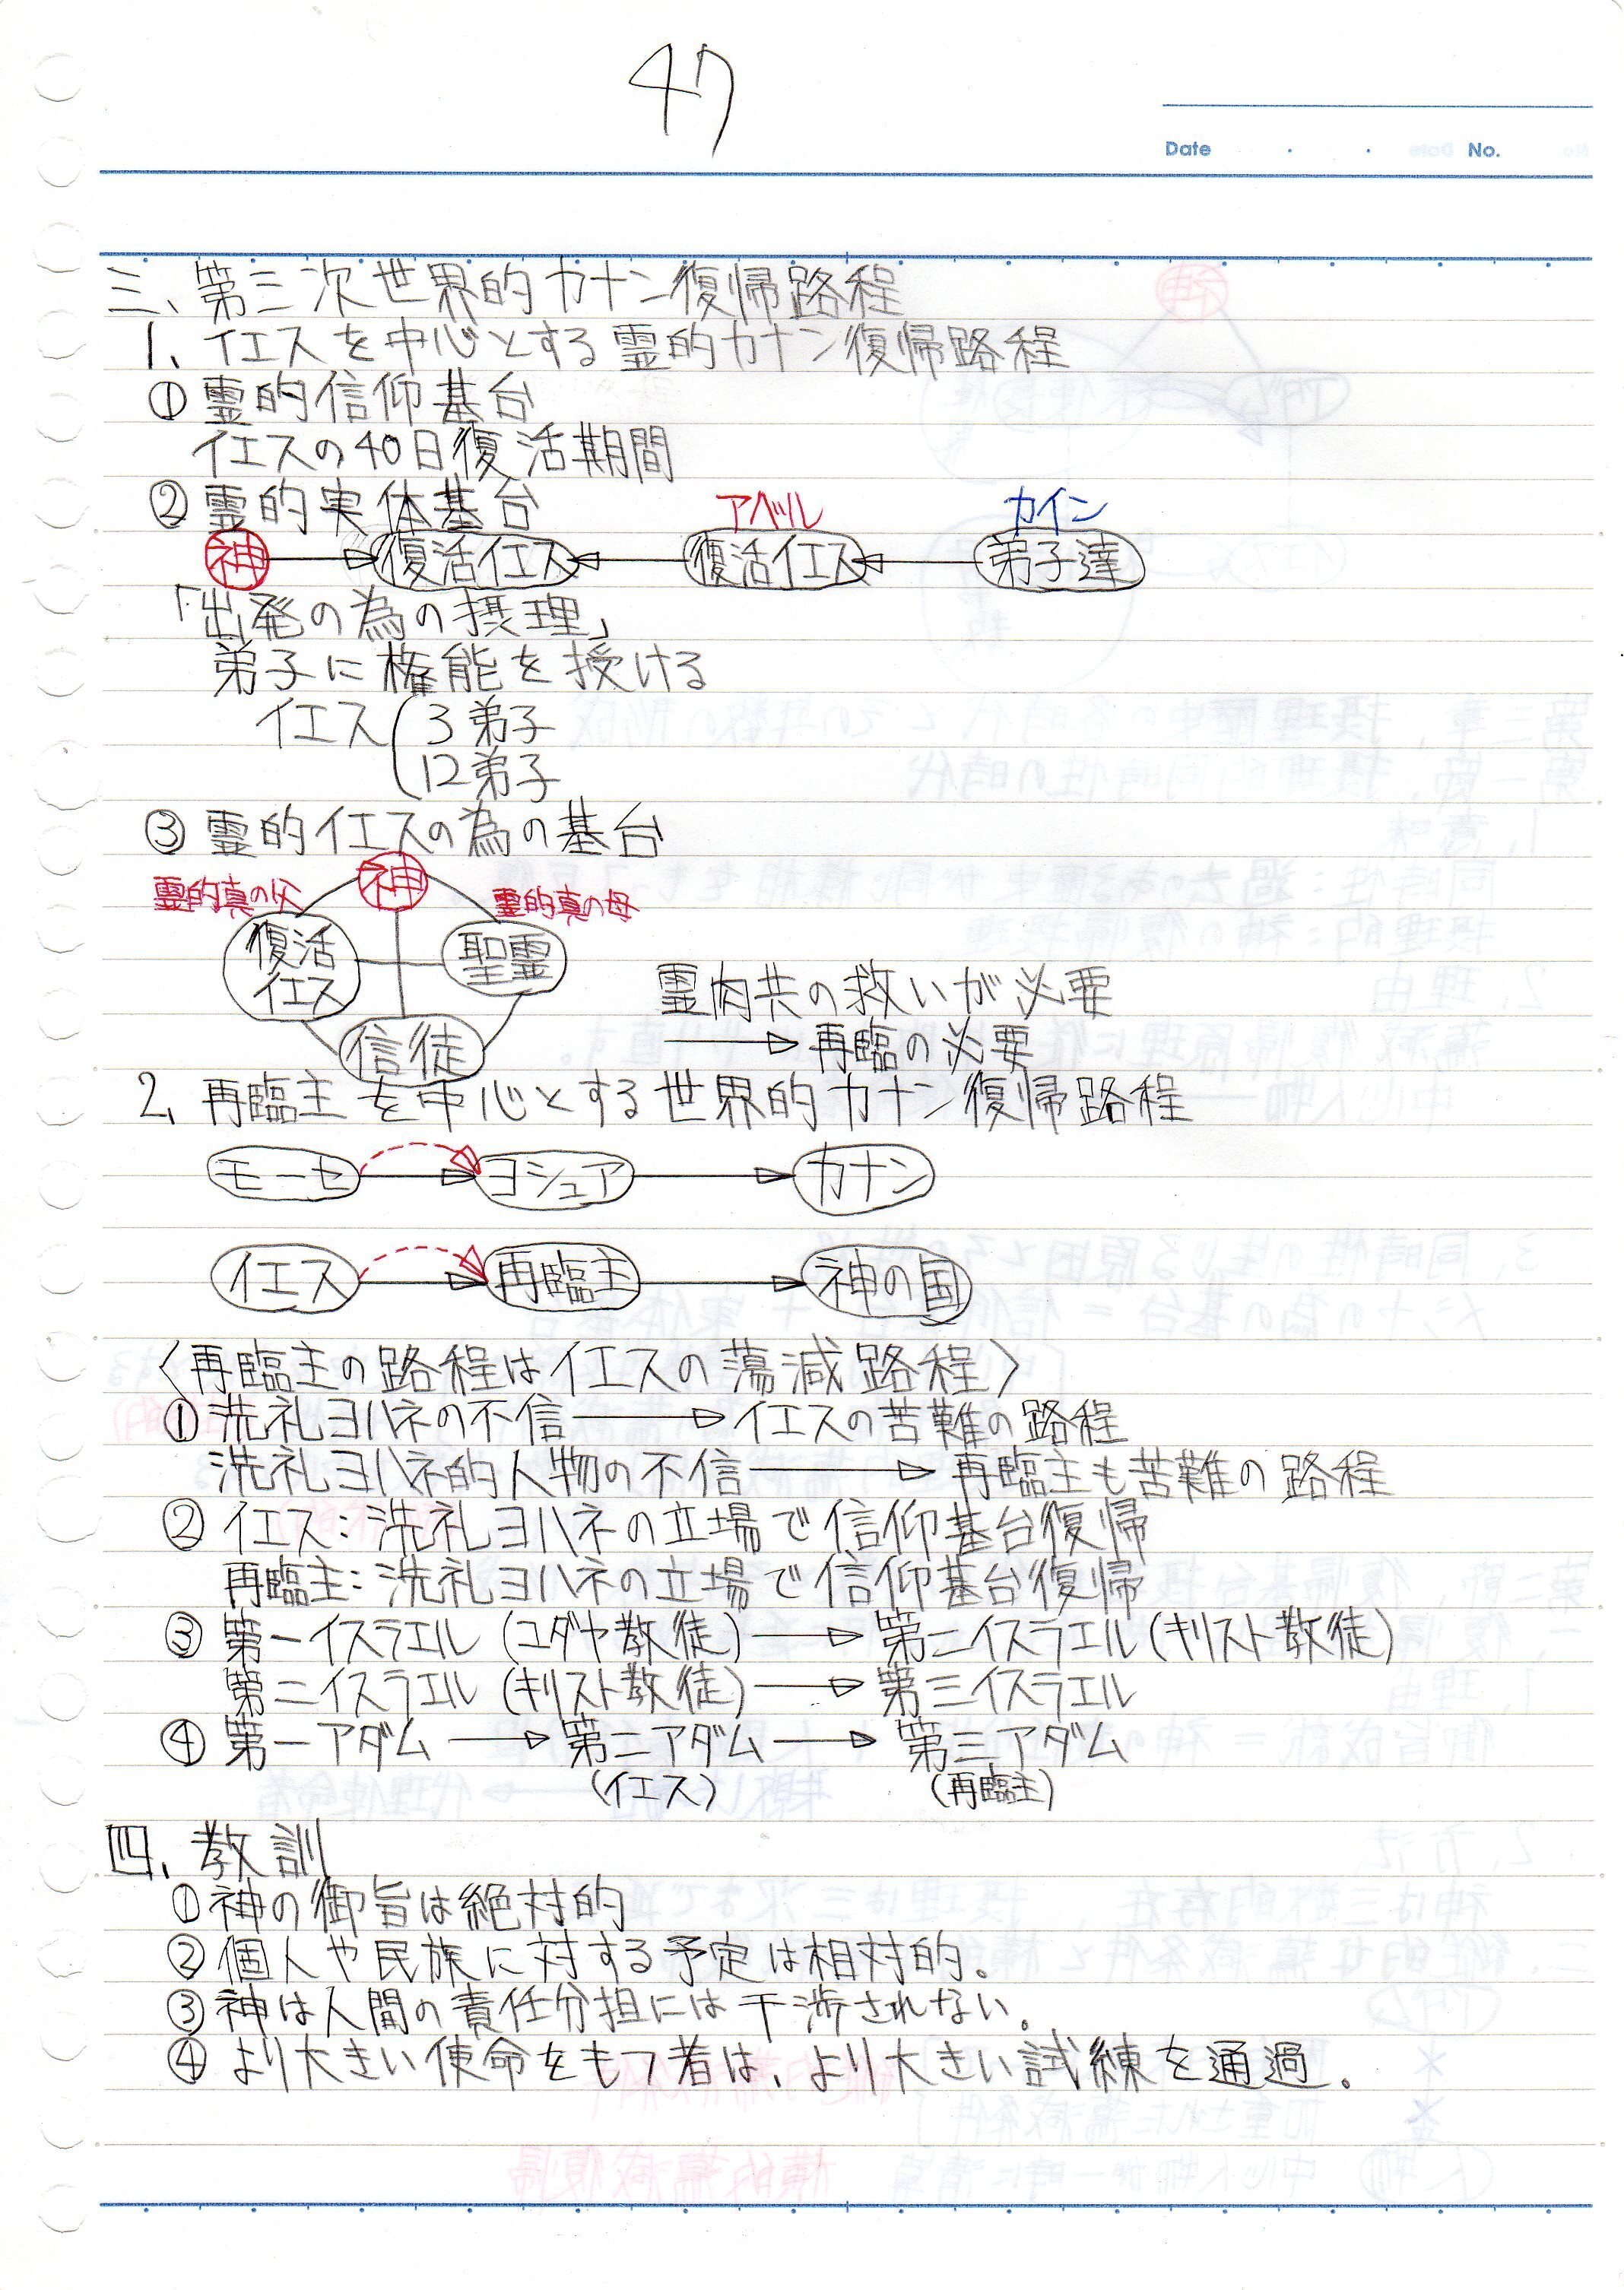 47
Date ・ ・ No.
三、第三次世界的カナン復帰路程
1、イエスを中心とする霊的カナン復帰路程
①霊的信仰基台
イエスの40日復活期間
②霊的実体基台
アベル カイン
神 復活イエス 復活イエス 弟子達
「出発の為の摂理」
弟子に権能を授ける
イエス 3弟子
12弟子
③霊的イエスの為の基台
神
霊的真の父 霊的真の母
復活イエス 聖霊
信徒
霊肉共の救いが必要
→再臨の必要
2、再臨主を中心とする世界的カナン復帰路程
モーセ→ヨシュア→カナン
イエス→再臨主→神の国
〈再臨主の路程はイエスの蕩減路程〉
①洗礼ヨハネの不信→イエスの苦難の路程
洗礼ヨハネ的人物の不信→再臨主も苦難の路程
②イエス:洗礼ヨハネの立場で信仰基台復帰
再臨主:洗礼ヨハネの立場で信仰基台復帰
③第一イスラエル(ユダヤ教徒)→第二イスラエル(キリスト教徒)
第二イスラエル(キリスト教徒)→第三イスラエル
④第一アダム→第二アダム→第三アダム
(イエス) (再臨主)
四、教訓
①神の御旨は絶対的
②個人や民族に対する予定は相対的。
③神は人間の責任分担には干渉されない。
④より大きい使命をもつ者は、より大きい試練を通過。